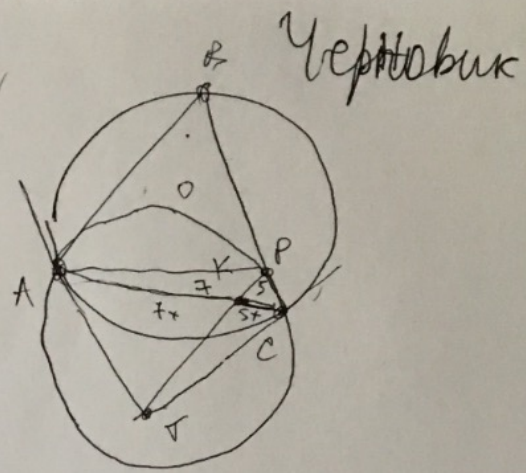 Черновик
B
O
A
K
P
7
5
7x
5x
C
T